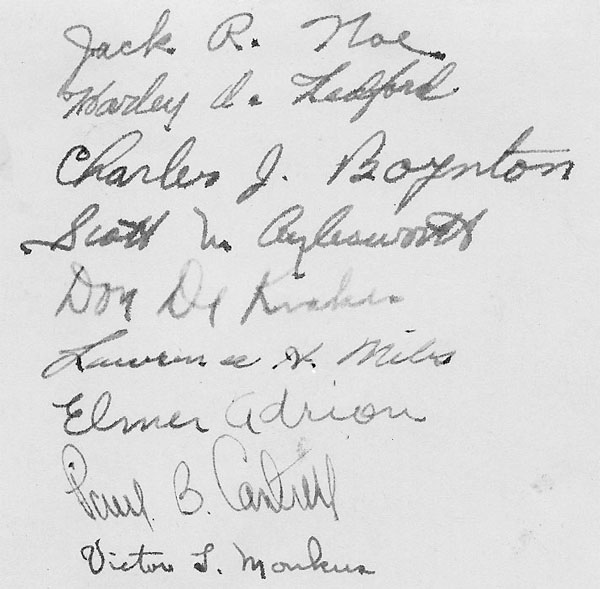 Jack R. Noe
Harley D. Ledford
Charles J. Boynton
Scott N. Aylesworth
Don De
Lawrence K. Miles
Elmer Adrion
Paul B. Cantrell
Victor S. Monkus